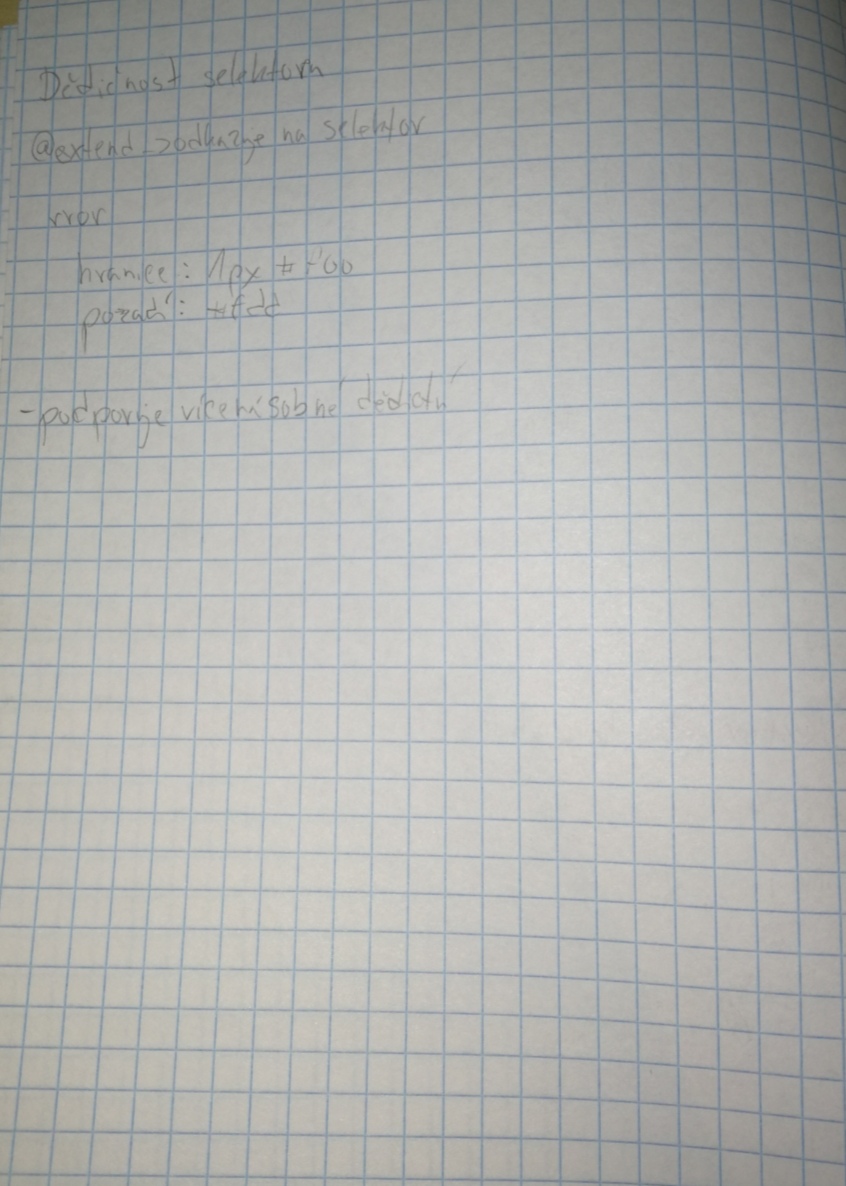 Dědičnost selektorů
@extend -> odkazuje na selektor
rror
hranice: 1px #f00
pozadí: #fdd
- podporuje vícenásobné dědění